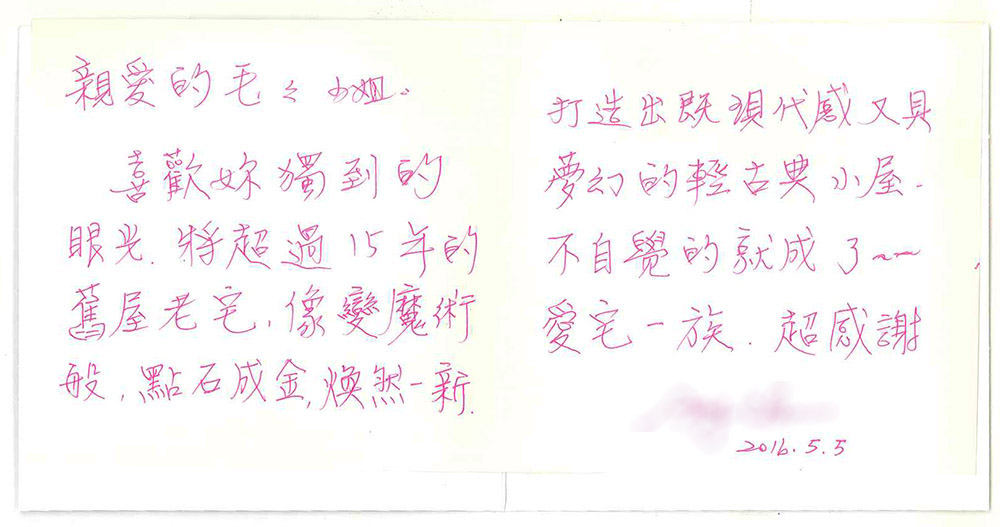 親愛的毛々小姐。
喜歡妳獨到的
眼光.將超過15年的
舊屋老宅,像變魔術
般,點石成金,煥然一新.
打造出既現代感又具
夢幻的輕古典小屋.
不自覺的就成了~~
愛宅一族.超感謝
2016.5.5